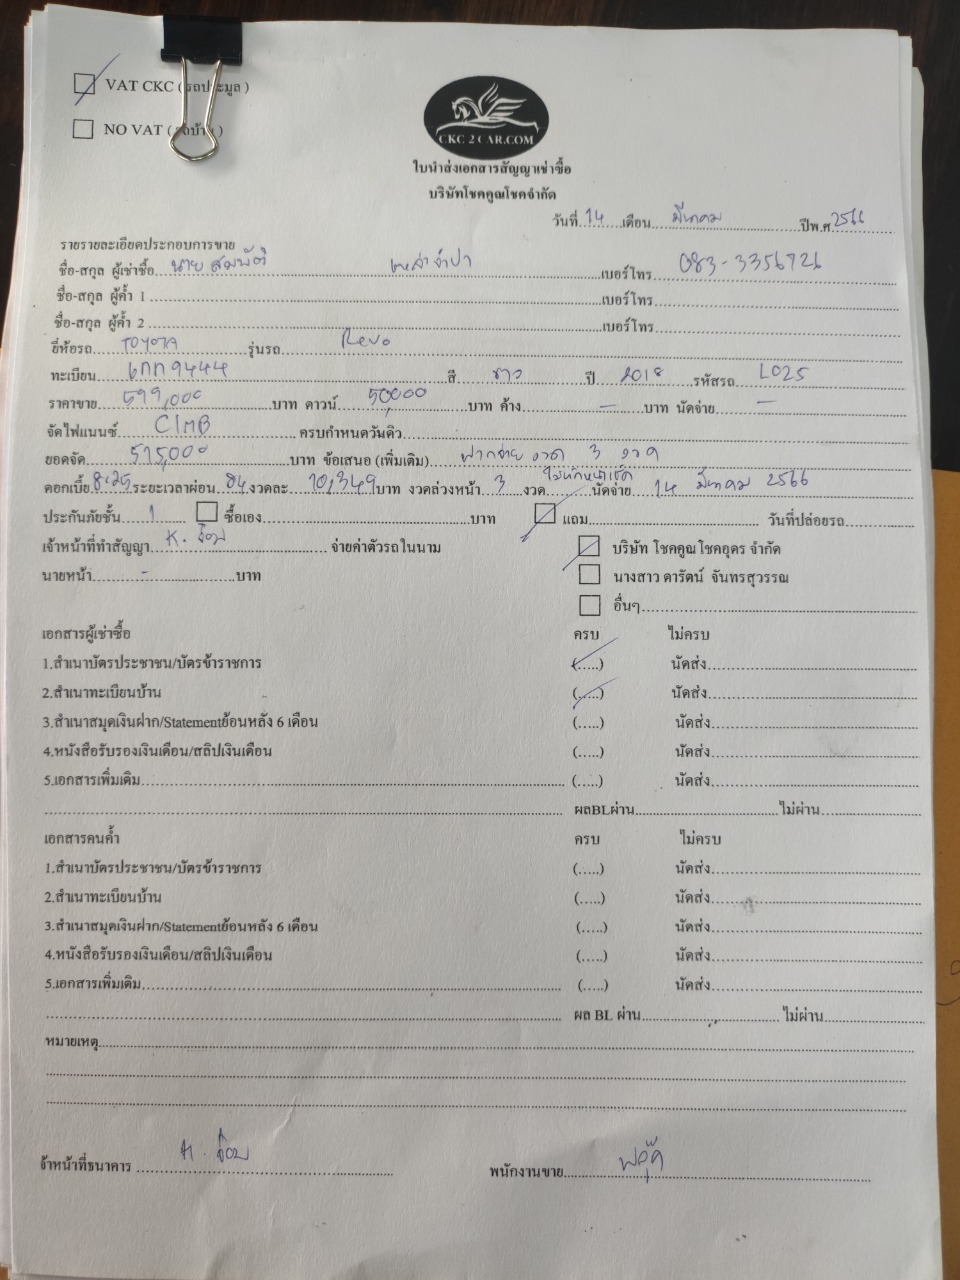 VAT CKC (รถประมูล)
NO VAT (รถบ้าน)
CKC 2 CAR.COM
ใบนำส่งเอกสารสัญญาเช่าซื้อ
บริษัทโชคคูณโชคจำกัด
วันที่ 14 เดือน มีนาคม ปีพ.ศ 2566
รายรายละเอียดประกอบการขาย
ชื่อ-สกุล ผู้เช่าซื้อ นาย สมพัติ เหล่าจำปา เบอร์โทร 083-3356726
ชื่อ-สกุล ผู้ค้ำ 1 เบอร์โทร
ชื่อ-สกุล ผู้ค้ำ 2 เบอร์โทร
ยี่ห้อรถ TOYOTA รุ่นรถ Revo
ทะเบียน 6กก9444 สี ขาว ปี 2018 รหัสรถ L025
ราคาขาย 599,000 บาท ดาวน์ 50,000 บาท ค้าง - บาท นัดจ่าย -
จัดไฟแนนซ์ CIMB ครบกำหนดวันดิว
ยอดจัด 575,000 บาท ข้อเสนอ (เพิ่มเติม) ฝากจ่าย งวด 3 งวด
ดอกเบี้ย 8.25 ระยะเวลาผ่อน 84 งวดละ 10,349 บาท งวดล่วงหน้า 3 งวด ไม่หักหน้าเช็ค นัดจ่าย 14 มีนาคม 2566
ประกันภัยชั้น 1 ซื้อเอง บาท แถม วันที่ปล่อยรถ
เจ้าหน้าที่ทำสัญญา K. จ๊อบ จ่ายค่าตัวรถในนาม บริษัท โชคคูณโชคอุดร จำกัด
นายหน้า - บาท นางสาว ดารัตน์ จันทรสุวรรณ
อื่นๆ
เอกสารผู้เช่าซื้อ ครบ ไม่ครบ
1.สำเนาบัตรประชาชน/บัตรข้าราชการ (.....) นัดส่ง
2.สำเนาทะเบียนบ้าน (.....) นัดส่ง
3.สำเนาสมุดเงินฝาก/Statementย้อนหลัง 6 เดือน (.....) นัดส่ง
4.หนังสือรับรองเงินเดือน/สลิปเงินเดือน (.....) นัดส่ง
5.เอกสารเพิ่มเติม (.....) นัดส่ง
ผลBLผ่าน ไม่ผ่าน
เอกสารคนค้ำ ครบ ไม่ครบ
1.สำเนาบัตรประชาชน/บัตรข้าราชการ (.....) นัดส่ง
2.สำเนาทะเบียนบ้าน (.....) นัดส่ง
3.สำเนาสมุดเงินฝาก/Statementย้อนหลัง 6 เดือน (.....) นัดส่ง
4.หนังสือรับรองเงินเดือน/สลิปเงินเดือน (.....) นัดส่ง
5.เอกสารเพิ่มเติม (.....) นัดส่ง
ผล BL ผ่าน ไม่ผ่าน
หมายเหตุ
จ้าหน้าที่ธนาคาร K. จ๊อบ พนักงานขาย